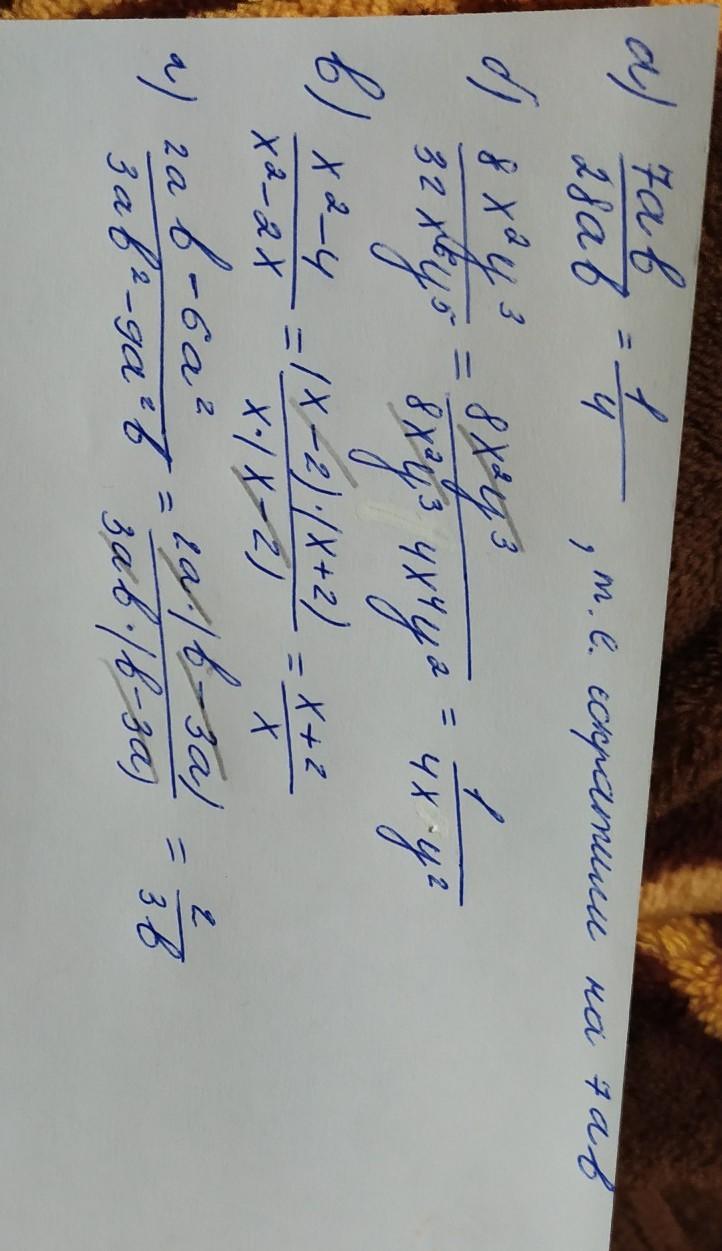 а) 7ab/28ab = 1/4 , т.е. сократим на 7ab
б) 8x²y³/32x⁶y⁵ = 8x²y³/8x²y³ 4x⁴y² = 1/4x y²
в) x²-4/x²-2x = (x-2)·(x+2)/x·(x-2) = x+2/x
г) 2ab-6a²/3ab²-9a²b = 2a·(b-3a)/3ab·(b-3a) = 2/3b